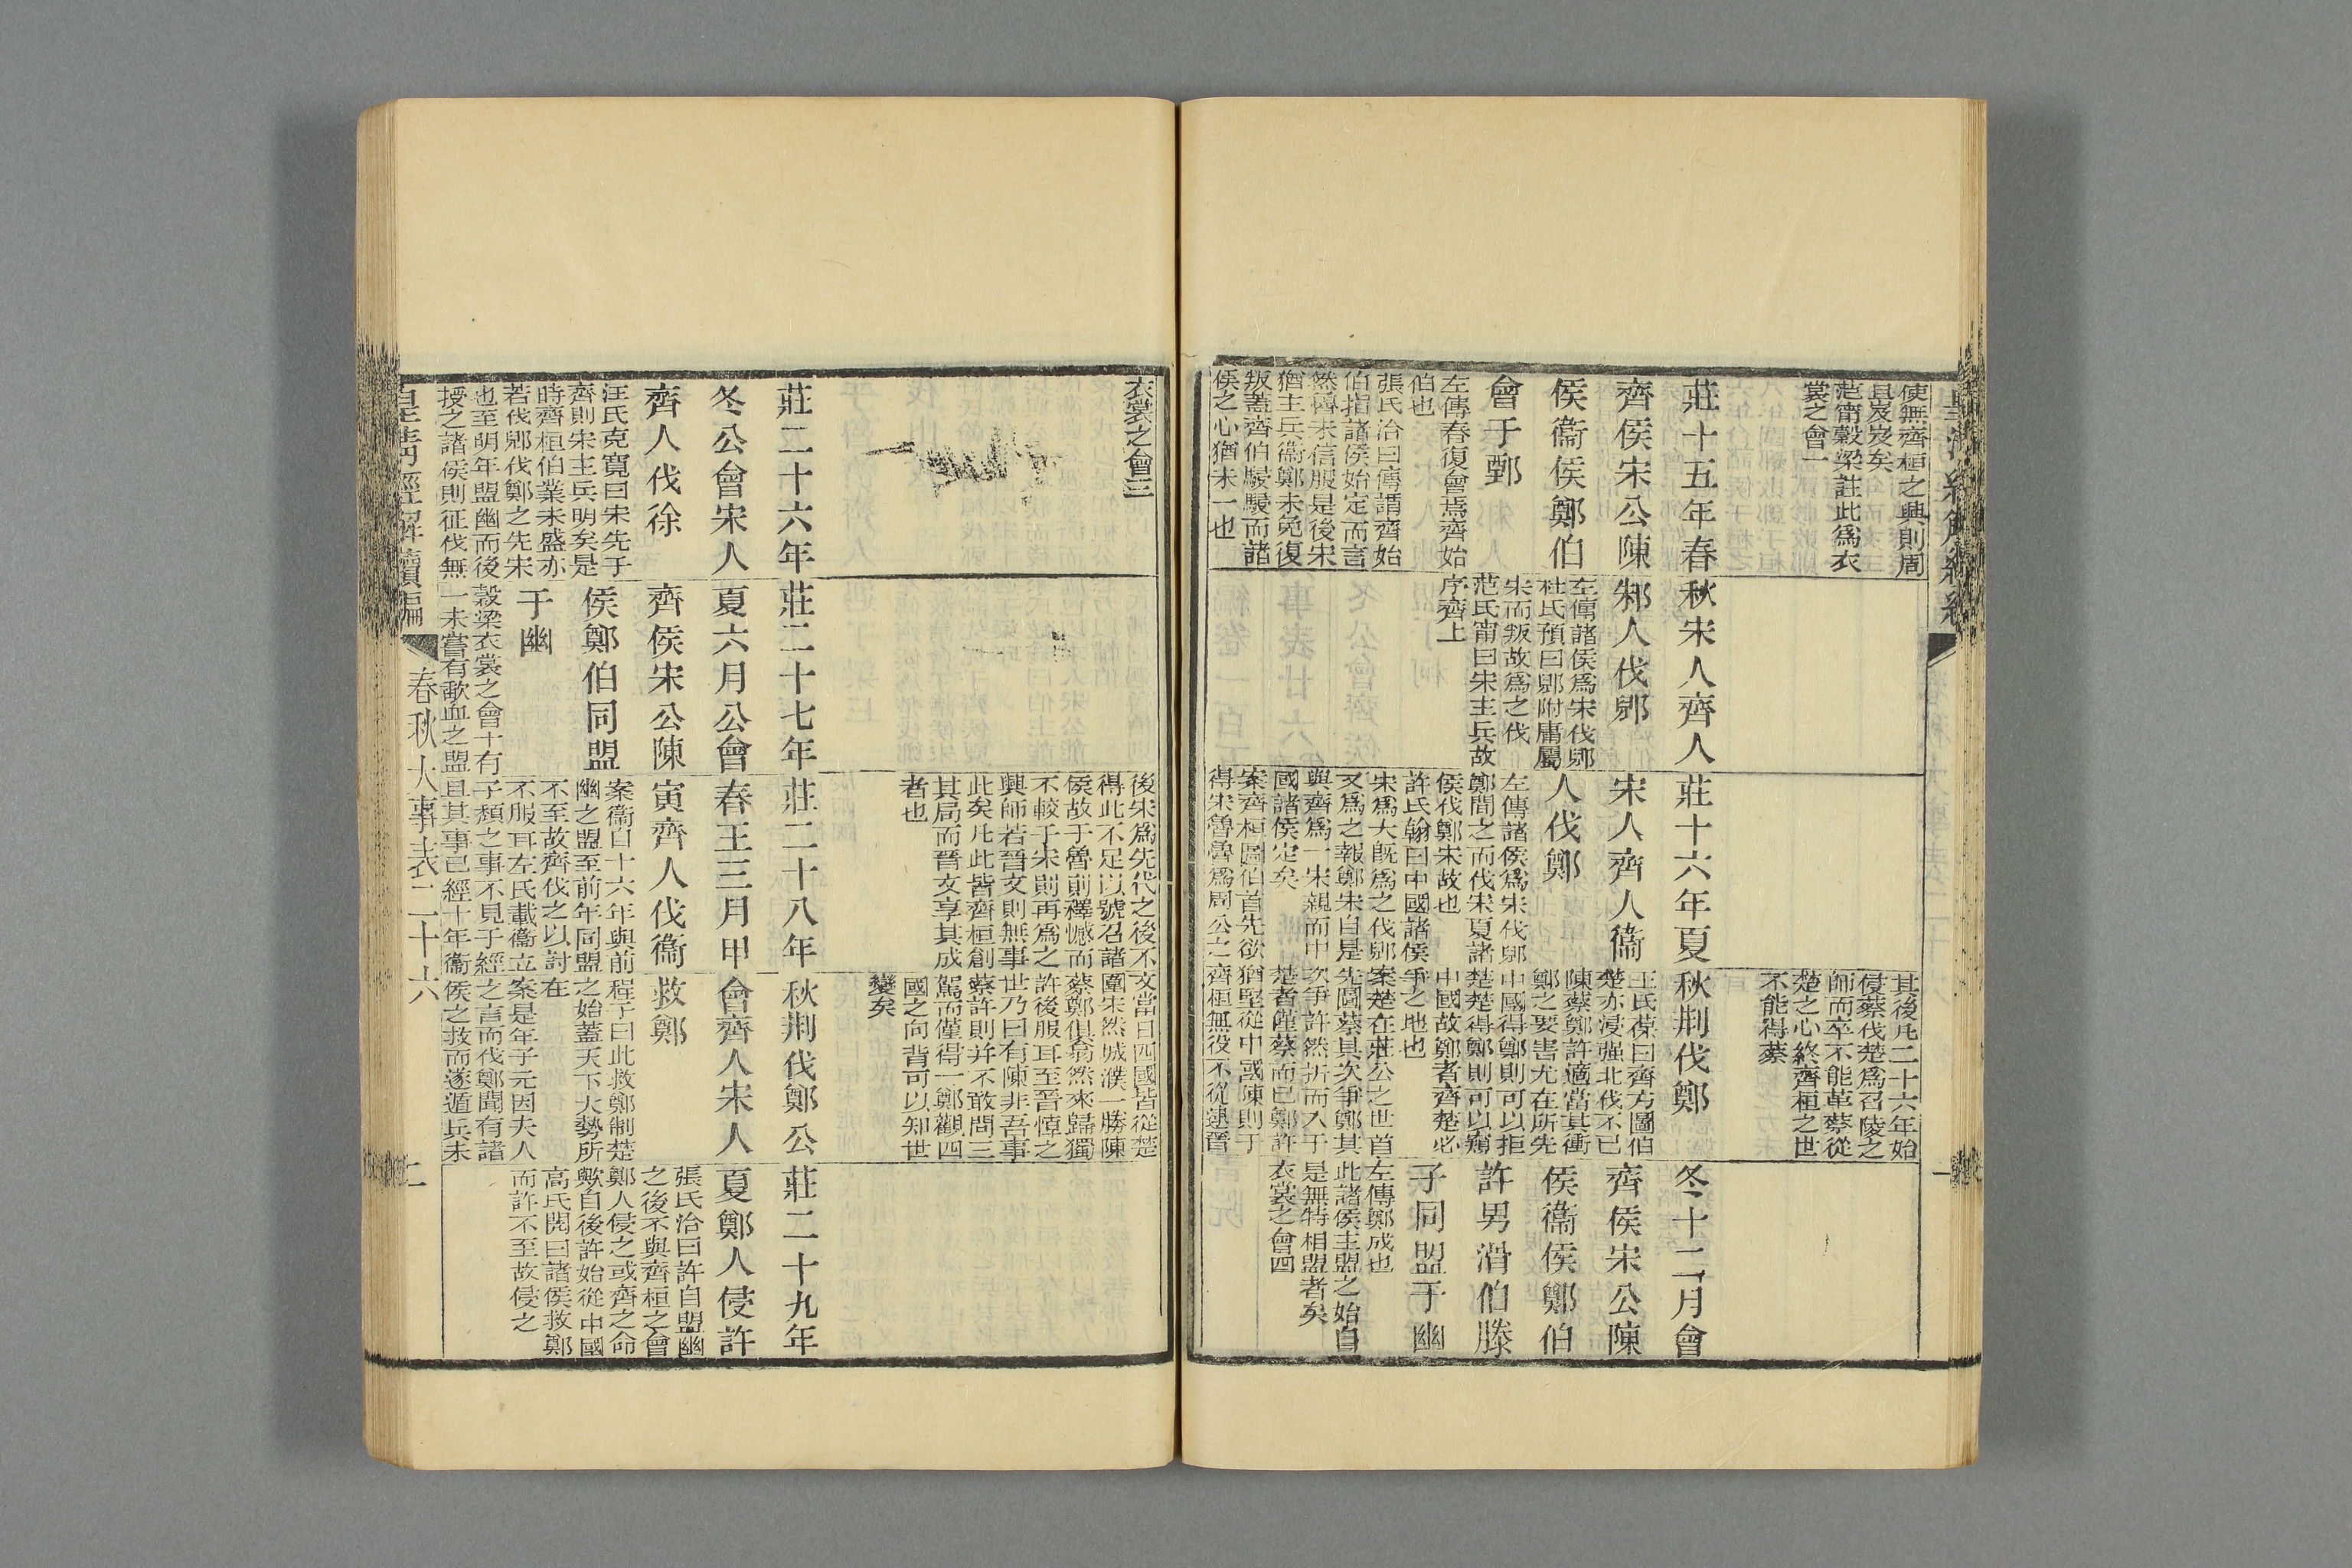 皇清經解續編
使無齊桓之興則周
且岌岌矣
范甯穀梁註此爲衣
裳之會一
莊十五年春
齊侯宋公陳
侯衞侯鄭伯
會于鄄
左傳春復會焉齊始
伯也
張氏洽曰傳謂齊始
伯指諸侯始定而言
然傳未信服是後宋
猶主兵衞鄭未免復
叛蓋齊伯駸駸而諸
侯之心猶未一也
秋宋人齊人
邾人伐郳
左傳諸侯爲宋伐郳
杜氏預曰郳附庸屬
宋而叛故爲之伐
范氏甯曰宋主兵故
序齊上
莊十六年夏
宋人齊人衞
人伐鄭
左傳諸侯爲宋伐郳
鄭間之而伐宋夏諸
侯伐鄭宋故也
許氏翰曰中國諸侯
宋爲大旣爲之伐郳
又爲之報鄭宋自是
與齊爲一宋親而中
國諸侯定矣
案齊桓圖伯首先欲
得宋魯魯爲周公之
其後凡二十六年始
侵蔡伐楚爲召陵之
師而卒不能革蔡從
楚之心終齊桓之世
不能得蔡
秋荆伐鄭
王氏葆曰齊方圖伯
楚亦浸强北伐不已
陳蔡鄭許適當其衝
鄭之要害尤在所先
中國得鄭則可以拒
楚楚得鄭則可以窺
中國故鄭者齊楚必
爭之地也
案楚在莊公之世首
先圖蔡其次爭鄭其
次爭許然折而入于
楚者僅蔡而已鄭許
猶堅從中國陳則于
齊桓無役不從逮晉
冬十二月會
齊侯宋公陳
侯衞侯鄭伯
許男滑伯滕
子同盟于幽
左傳鄭成也
此諸侯主盟之始自
是無特相盟者矣
衣裳之會四
衣裳之會三
莊二十六年
冬公會宋人
齊人伐徐
汪氏克寬曰宋先于
齊則宋主兵明矣是
時齊桓伯業未盛亦
若伐郳伐鄭之先宋
也至明年盟幽而後
授之諸侯則征伐無
莊二十七年
夏六月公會
齊侯宋公陳
侯鄭伯同盟
于幽
穀梁衣裳之會十有
一未嘗有歃血之盟
後宋爲先代之後不
得此不足以號召諸
侯故于魯則釋憾而
不較于宋則再爲之
興師若晉文則無事
此矣凡此皆齊桓創
其局而晉文享其成
者也
莊二十八年
春王三月甲
寅齊人伐衞
案衞自十六年與前
幽之盟至前年同盟
不至故齊伐之以討
不服耳左氏載衞立
子頹之事不見于經
且其事已經十年衞
文當日四國皆從楚
圍宋然城濮一勝陳
蔡鄭俱翕然來歸獨
許後服耳至晉悼之
世乃曰有陳非吾事
蔡許則并不敢問三
駕而僅得一鄭觀四
國之向背可以知世
變矣
秋荆伐鄭公
會齊人宋人
救鄭
程子曰此救鄭制楚
之始蓋天下大勢所
在
案是年子元因夫人
之言而伐鄭聞有諸
侯之救而遂遁兵未
莊二十九年
夏鄭人侵許
張氏洽曰許自盟幽
之後不與齊桓之會
鄭人侵之或齊之命
歟自後許始從中國
高氏閌曰諸侯救鄭
而許不至故侵之
皇淸經解續編
春秋大事表二十六
二